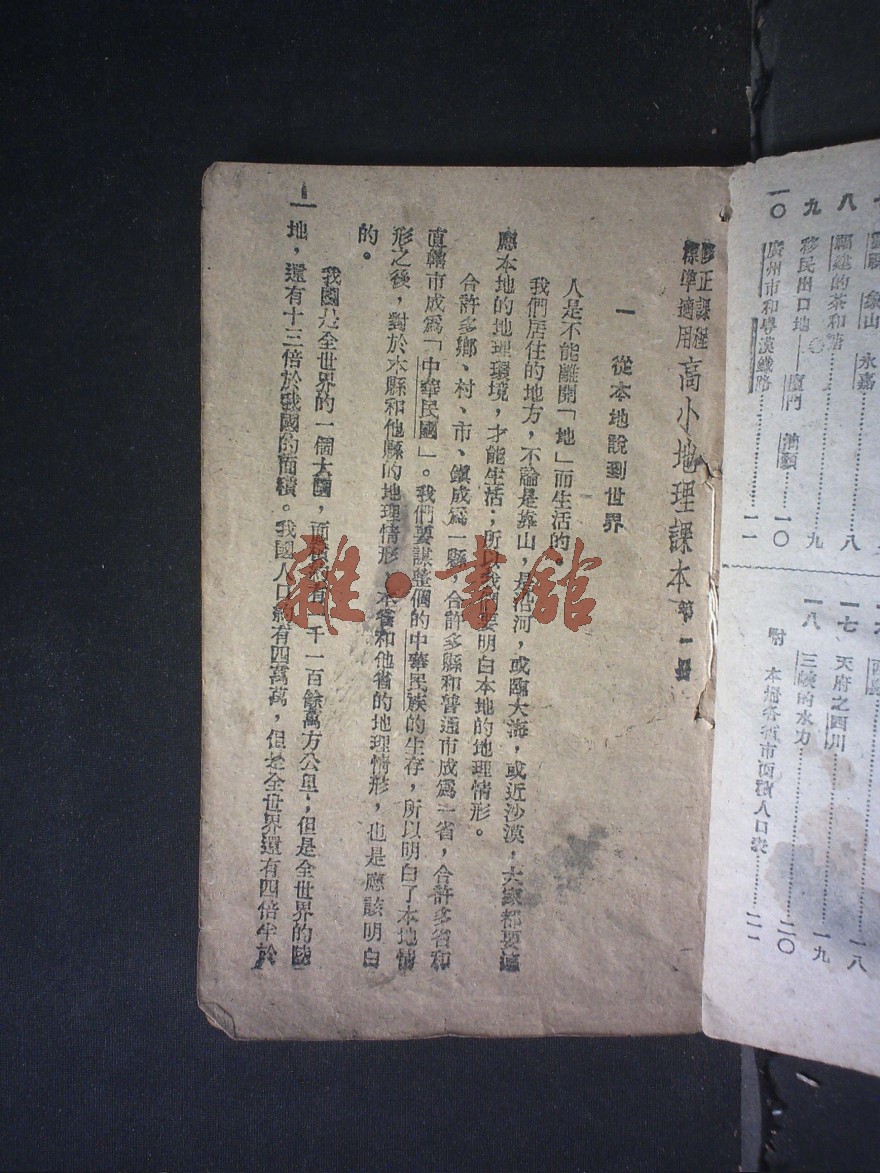 修正課程
標準適用
高小地理課本 第一册
一 從本地說到世界
人是不能離開「地」而生活的
我們居住的地方，不論是靠山，是沿河，或臨大海，或近沙漠，大家都要適
應本地的地理環境，才能生活；所以我們要明白本地的地理情形。
合許多鄉、村、市、鎮成爲一縣，合許多縣和普通市成爲一省，合許多省和
直轄市成爲「中華民國」。我們要謀整個的中華民族的生存，所以明白了本地情
形之後，對於本縣和他縣的地理情形，本省和他省的地理情形，也是應該明白
的。
我國是全世界的一個大國，面積約有一千一百餘萬方公里；但是全世界的陸
地，還有十三倍於我國的面積。我國人口約有四萬萬，但是全世界還有四倍半於
一
八 福建的茶和 八
九 移民出口地——廈門 汕頭 九
一〇 廣州市和粵漢鐵路 一〇
象山 永嘉
一一
一七 天府之四川 一八
一八 三峽的水力 一九
附 本册各省市面積人口表 二〇
二一
雜·書館